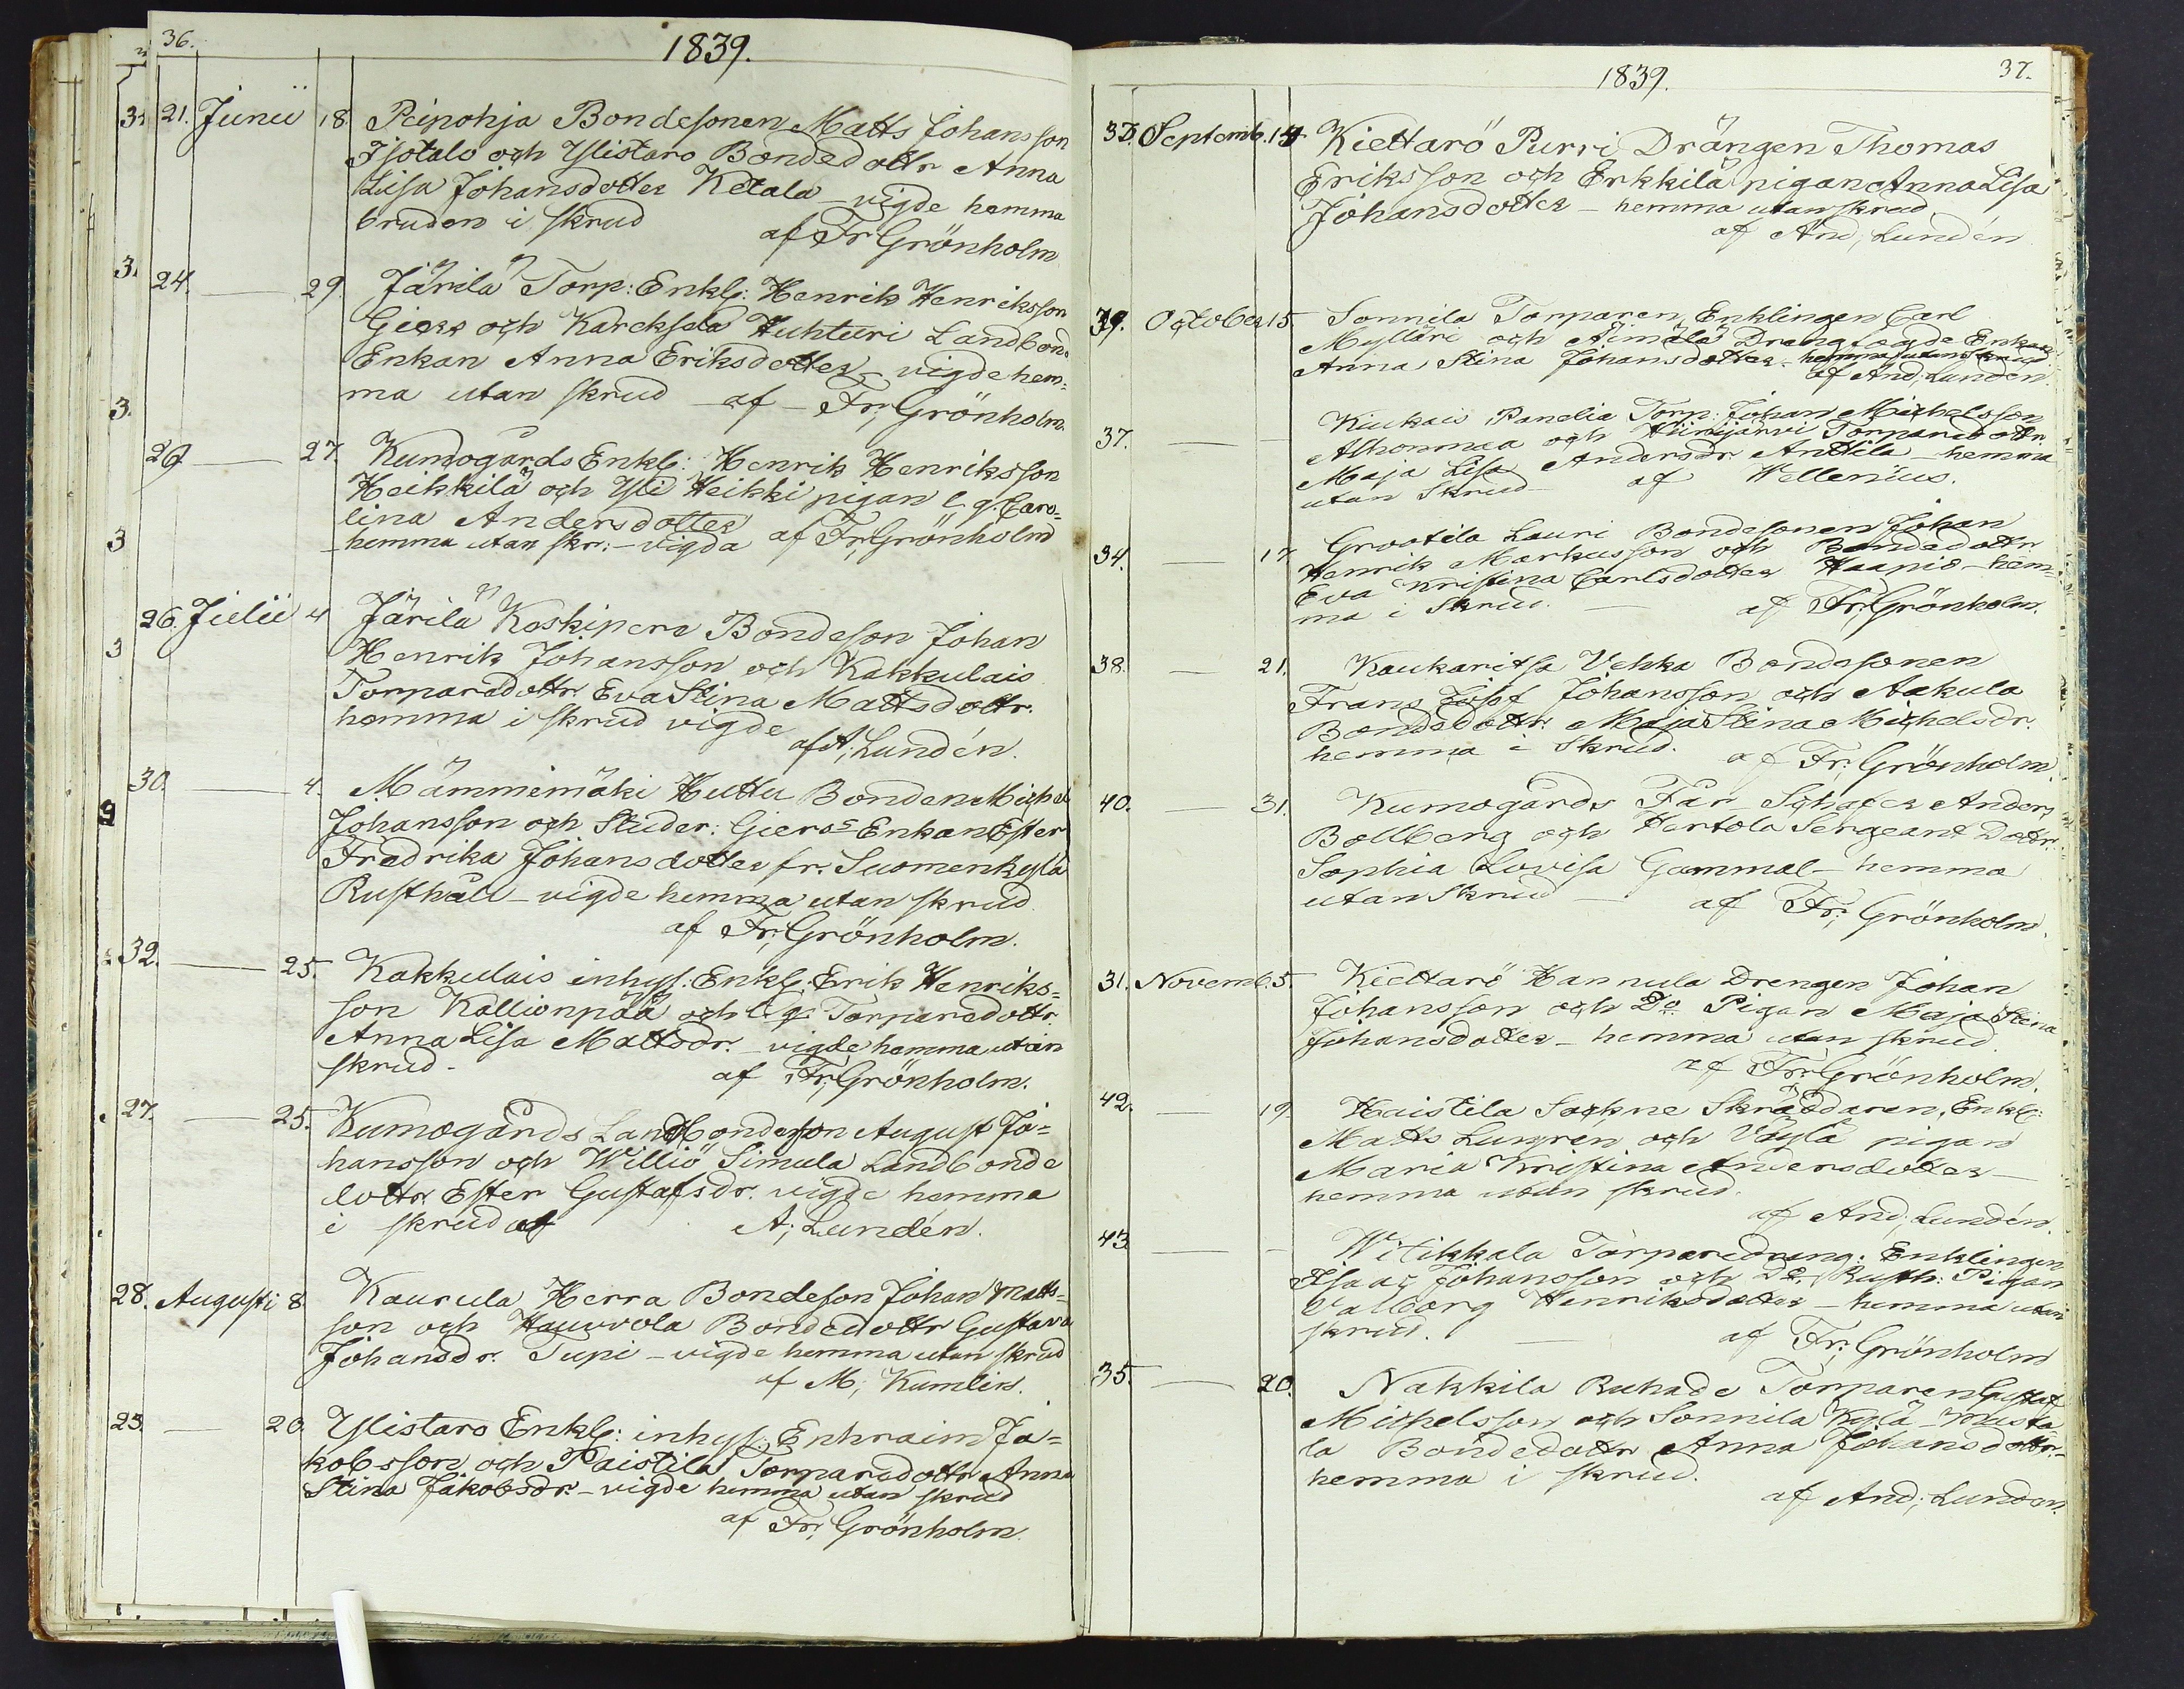 36.
1839.
21. Junii 18. Peipohja Bondesonen Matts Johansson
Isotalo och Ylistaro Bondedottr Anna
Lisa Johansdotter Ketala - vigde hemma
bruden i skrud af Fr Grönholm
24. — 29. Järilä Torp: Enkl: Henrik Henriksson
Giers och Karcksela Huhturi Landbond
Enkan Anna Eriksdotter - vigde hem=
ma utan skrud - af - Fr; Grönholm.
29 — 27. Kumogårds Enkl: Henrik Henriksson
Heikkilä och Yli Heikki pigan l. q. Caro=
lina Andersdotter
- hemma utan skr: - vigda af Fr; Grönholm
26. Julii 4 Järilä Koskipere Bondeson Johan
Henrik Johansson och Kakkulais
Torparedottr. Eva Stina Mattsdottr.
hemma i skrud vigde
af A; Lundén.
30. — 4. Mämmimäki Huttu Bonden Michel
Johansson och Studer: Gierss Enkan Ester
Fredrika Johansdotter fr. Suomenkylä
Rusthåll - vigde hemma utan skrud
af Fr; Grönholm.
32. — 25. Kakkulais inhys: Enkl: Erik Henriks=
son Kallionpää och l. q. Torparedottr.
Anna Lisa Mattsdr. - vigde hemma utan
skrud - af Fr; Grönholm.
27. — 25. Kumogårds Landbondeson August Jo=
hansson och Williö Simula Landbonde
dottr. Ester Gustafsdr. vigde hemma
i skrud af A; Lundén.
28. Augusti 8. Kaurula Herra Bondeson Johan Matts=
son och Hauvola Bondedottr Gustava
Johansdr. Tupi - vigde hemma utan skrud
af M; Kumlin.
23. — 20. Ylistaro Enkl: inhys: Enhraim Ja=
kobsson och Paistila Torparedottr Anna
Stina Jakobsdr. - vigde hemma utan skrud
af Fr; Grönholm.
1839.
37.
Septemb. 14 Kiettarö Purri Drängen Thomas
Eriksson och Erkkilä pigan Anna Lisa
Johansdotter - hemma utan skrud
af And; Lundén
39. October 15. Sonnila Torparen Enklingen Carl
Mylläri och Äimälä Drengfogde Enkan
Anna Stina Johansdotter - hemma utan skrud
af And; Lundén.
37. — Kiukais Panelia Torp: Johan Michelsson
Alhonmaa och Hiirijärvi Torparedottr.
Maja Lisa Andersdr Anttila - hemma
utan Skrud - af Wellenius.
34. — 17. Grootila Lauri Bondesonen Johan
Henrik Markusson och Bondedottr.
Eva Kristina Carlsdotter Haapio - hem=
ma i Skrud. — af Fr; Grönholm.
38. — 21. Kaukaritsa Vehka Bondesonen
Frans Johansson och Aakula
Bondedottr. Maja Stina Michelsdr.
hemma i Skrud. af Fr: Grönholm.
40. — 31. Kumogårds Får Schafer Anders
Bollberg och Hertola Sergeant Dottr.
Sophia Lovisa Gammal - hemma
utan Skrud — af Fr; Grönholm.
31. Novemb. 5. Kiettarö Hannula Drengen Johan
Johansson och Do. Pigan Maja Stina
Johansdotter - hemma utan skrud
af Fr: Grönholm.
42. — 19. Haistila Sockne Skräddaren, Enkl:
Matts Lungren och Vågla pigan
Maria Kristina Andersdotter -
hemma utan skrud.
af And; Lundén.
43. — Witikkala Torparedräng: Enklingen
Isaac Johansson och Do. Rusth: Pigan
Valborg Henriksdotter - hemma utan
skrud. — af Fr; Grönholm
35. — 20. Nakkila Ruhade Torparen Gustaf
Michelsson och Sonnila Kylä-Musta
la Bondedottr Anna Johansdottr. -
hemma i skrud.
af And; Lundan.